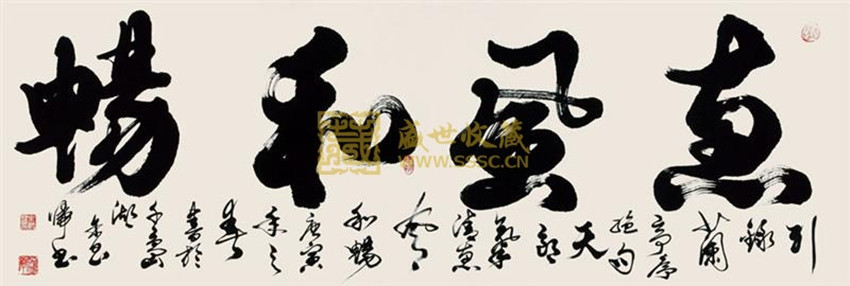 惠風和暢
引錄蘭亭序絕句天朗氣清惠風和暢庚寅年之春書於千島湖
盛世收藏
WWW.SSSC.CN